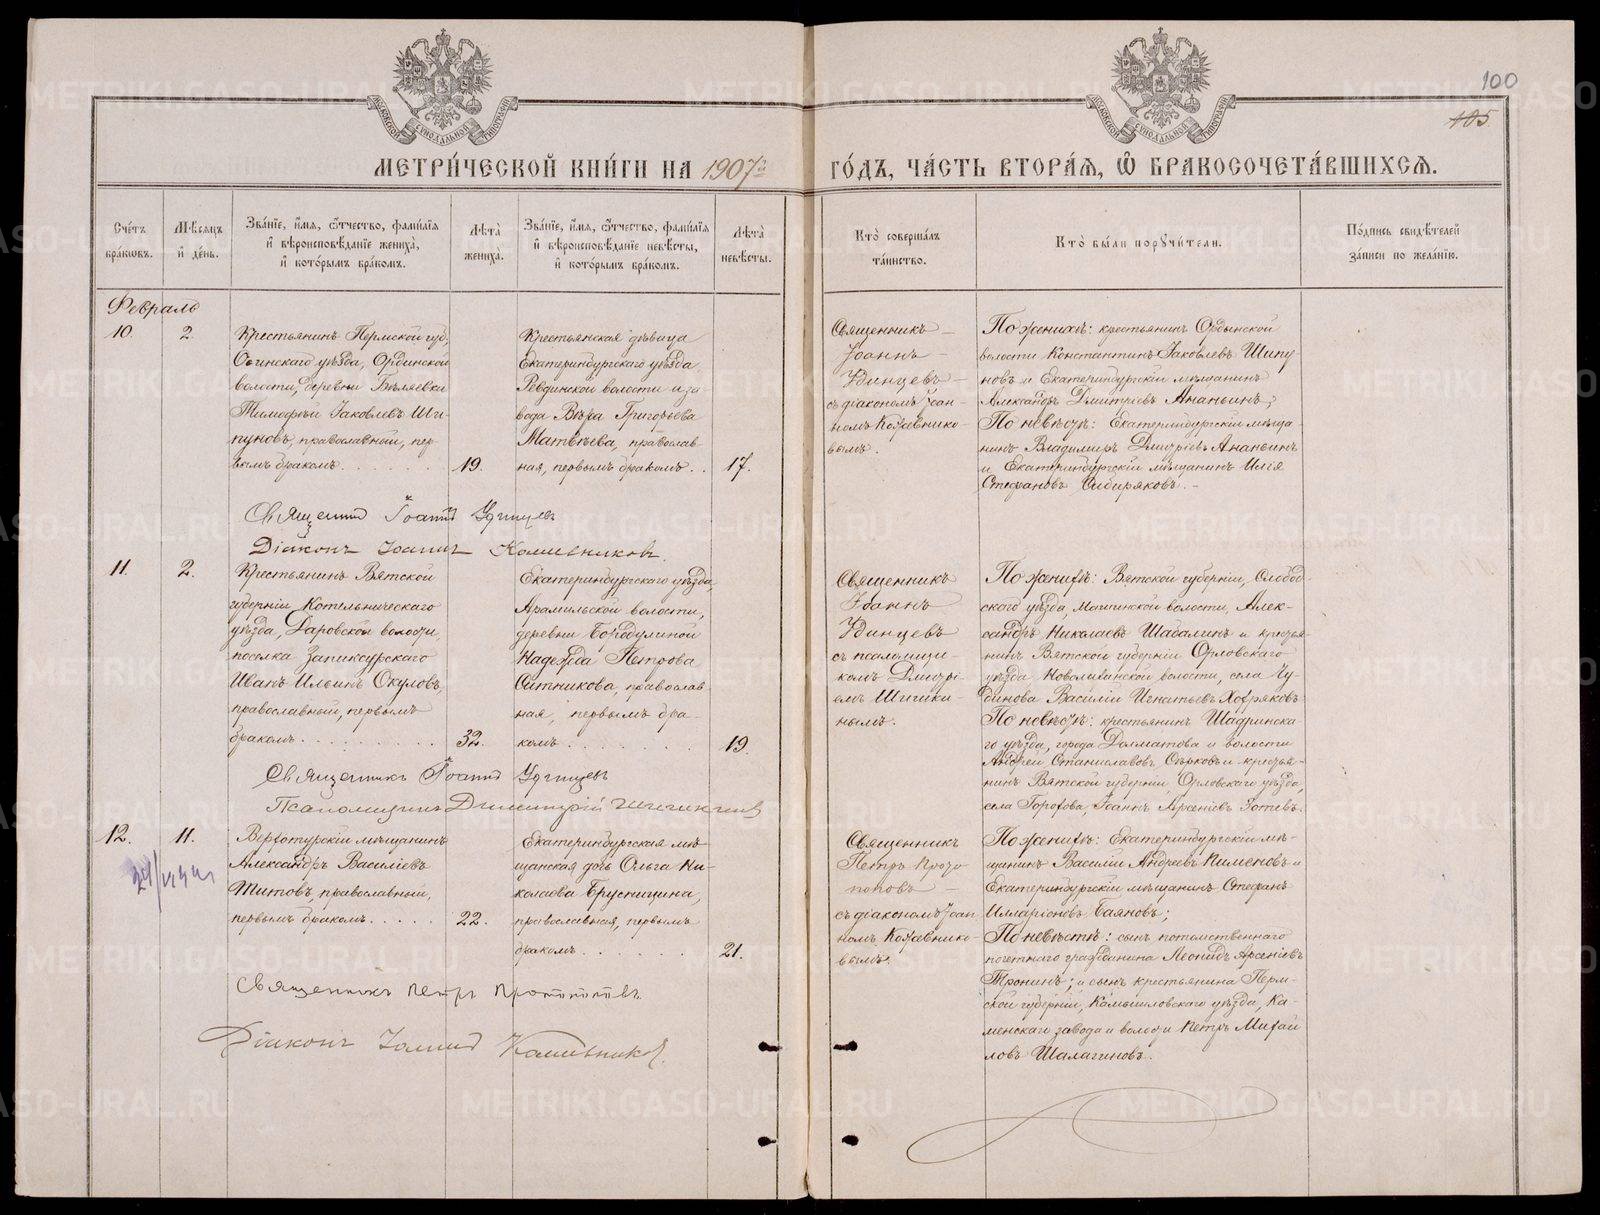 100
105
МОСКОВСКОЙ СѴНОДАЛЬНОЙ ТИПОГРАФІИ
МОСКОВСКОЙ СѴНОДАЛЬНОЙ ТИПОГРАФІИ
МЕТРИ́ЧЕСКОЙ КНИ́ГИ НА 1907й ГО́ДЪ, ЧА́СТЬ ВТОРА́Я, Ѿ БРАКОСОЧЕТА́ВШИХСЯ.
Сче́тъ бра́ковъ.
Мѣ́сяцъ и҆ де́нь.
Зва́нїе, и҆́мя, ѻ҆́тчество, фами́лїя и҆ вѣроисповѣ́данїе жениха̀, и҆ кото́рымъ бра́комъ.
Лѣта̀ жениха̀.
Зва́нїе, и҆́мя, ѻ҆́тчество, фами́лїя и҆ вѣроисповѣ́данїе невѣ́сты, и҆ кото́рымъ бра́комъ.
Лѣта̀ невѣ́сты.
Кто̀ соверша́лъ та́инство.
Кто̀ бы́ли порꙋчи́тели.
По́дпись свидѣ́телей за́писи по жела́нїю.
Февраль
10.
2.
Крестьянинъ Пермской губ,
Осинскаго уѣзда, Ординской
волости, деревни Бѣляевки
Тимофей Іаковлевъ Ши-
пуновъ, православный, пер-
вымъ бракомъ . . . . . .
19.
Крестьянская дѣвица
Екатеринбургскаго уѣзда
Ревдинской волости и за-
вода Вѣра Григорьева
Матвѣева, православ-
ная, первымъ бракомъ . .
17.
Священникъ —
Іоаннъ —
Удинцевъ —
съ діакономъ Іоан-
номъ Кожевнико-
вымъ.
По женихѣ: крестьянинъ Ординской
волости Константинъ Іаковлевъ Шипу
новъ и Екатеринбургскій мѣщанинъ
Александръ Дмитріевъ Ананьинъ;
По невѣстѣ: Екатеринбургскій мѣща-
нинъ Владимиръ Дмитріевъ Ананьинъ
и Екатеринбургскій мѣщанинъ Илія
Стефановъ Сибиряковъ. —
Священникъ Іоаннъ Удинцевъ
Діаконъ Іоаннъ Кожевниковъ
11.
2.
Крестьянинъ Вятской
губерніи Котельническаго
уѣзда, Даровской волости,
поселка Запиксурскаго
Иванъ Ильинъ Окуловъ,
православный, первымъ
бракомъ . . . . . . . . .
32.
Екатеринбургскаго уѣзда,
Арамильской волости,
деревни Бородулиной
Надежда Петрова
Ситникова, православ
ная, первымъ бра-
комъ . . . . . . .
19.
Священникъ
Іоаннъ
Удинцевъ
съ псаломщи-
комъ Димитрі-
емъ Шишки-
нымъ.
По женихѣ: Вятской губерніи, Слобод-
скаго уѣзда, волости, Алек-
сандръ Николаевъ Шабалинъ и крестья
нинъ Вятской губерніи Орловскаго
уѣзда, волости, села Чу-
динова Василій Игнатьевъ Ховряковъ
По невѣстѣ: крестьянинъ Шадринска-
го уѣзда, города Далматова и волости
Андрей Станиславовъ и крестья-
нинъ Вятской губерніи, Орловскаго уѣзда,
села Іоаннъ Арсеніевъ Зотевъ.
Священникъ Іоаннъ Удинцевъ
Псаломщикъ Димитрій Шишкинъ
12.
11.
Верхотурскій мѣщанинъ
Александръ Василіевъ
Титовъ, православный,
первымъ бракомъ . . . . .
22.
Екатеринбургская мѣ-
щанская дочь Ольга Ни-
колаева Брусницина,
православная, первымъ
бракомъ . . . . . .
21.
Священникъ
Петръ
поповъ —
съ діакономъ Іоан
номъ Кожевнико-
вымъ.
По женихѣ: Екатеринбургскій мѣ-
щанинъ Василій Андреевъ Пименовъ и
Екатеринбургскій мѣщанинъ Стефанъ
Илларіоновъ Баяновъ;
По невѣстѣ: сынъ потомственнаго
почетнаго гражданина Леонидъ Арсеніевъ
Тронинъ; и сынъ крестьянина Перм-
ской губерніи, Камышловскаго уѣзда, Ка-
менскаго завода и волости Петръ Михай
ловъ Шалагиновъ.
Священникъ Петръ
Діаконъ Іоаннъ Кожевниковъ
METRIKI.GASO-URAL.RU